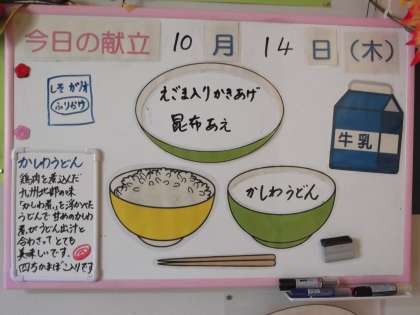 今日の献立 10月14日(木)
しそかつお
ふりかけ
えごま入りかきあげ
昆布あえ
牛乳
かしわうどん
かしわうどん
鶏肉を煮込んだ
九州北部の味
「かしわ煮」を浮かべた
うどんで甘めのかしわ
煮がうどん出汁と
合わさってとても
美味しいです。
四ちかまぼこ入りです